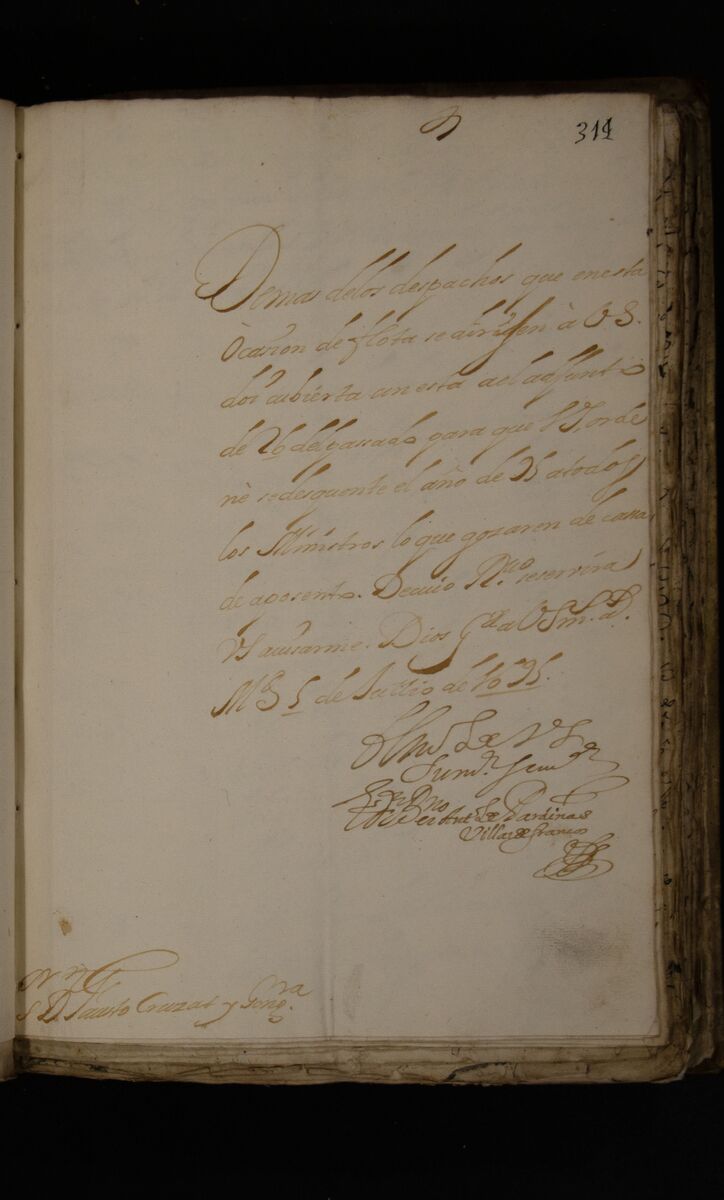 311
Demas delos despachos que enesta
Ocasion de flota se dirijen à VS.
dos cubierta con esta del adjunto
de 26 del passado para que VS orde
ne sedesquente el año de 95 atodos
los Ministros lo que gozaren de cassa
de aposento. De cuio R.uo se servira
VS auisarme. Dios G.de a VS m.s a.s
M.d 5 de Jullio de 1695.
BlmodeVS
Su m.r seru.or
D.n Bernar.no
Ant de Pardiñas
Villar de francos
S.r D. Fausto Cruzat y Gong.ra